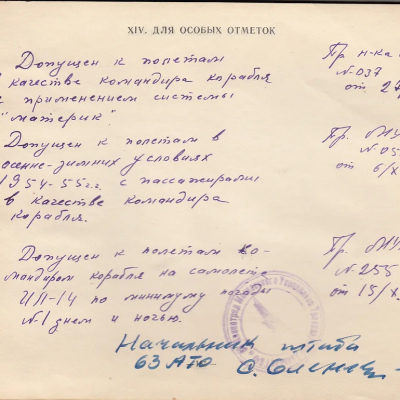 XIV. ДЛЯ ОСОБЫХ ОТМЕТОК
Допущен к полетам Пр. н-ка
качестве командира корабля №037
применением системы от 27
"материк".
Допущен к полетам в Пр.
осенне-зимних условиях №05
1954-55 г.г. с пассажирами от 6/X
в качестве командира
корабля.
Допущен к полетам ко- Пр.
мандиром корабля на самолете №255
ИЛ-14 по минимуму погоды от 15/X
№1 днем и ночью.
Начальник штаба
63 АТО С.